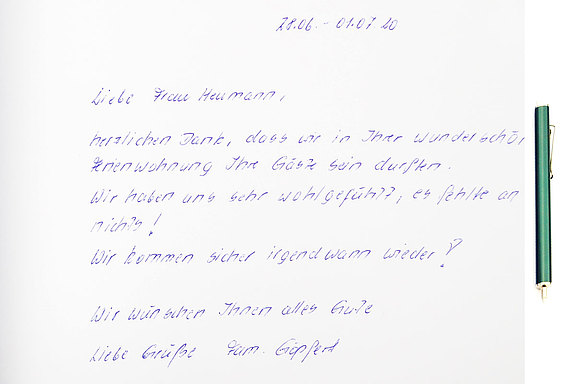 28.06. - 01.07.20
Liebe Frau Heumann,
herzlichen Dank, dass wir in Ihrer wunderschön
Ferienwohnung Ihre Gäste sein durften.
Wir haben uns sehr wohlgefühlt, es fehlte an
nichts!
Wir kommen sicher irgendwann wieder!
Wir wünschen Ihnen alles Gute
Liebe Grüße Fam. Göpfert